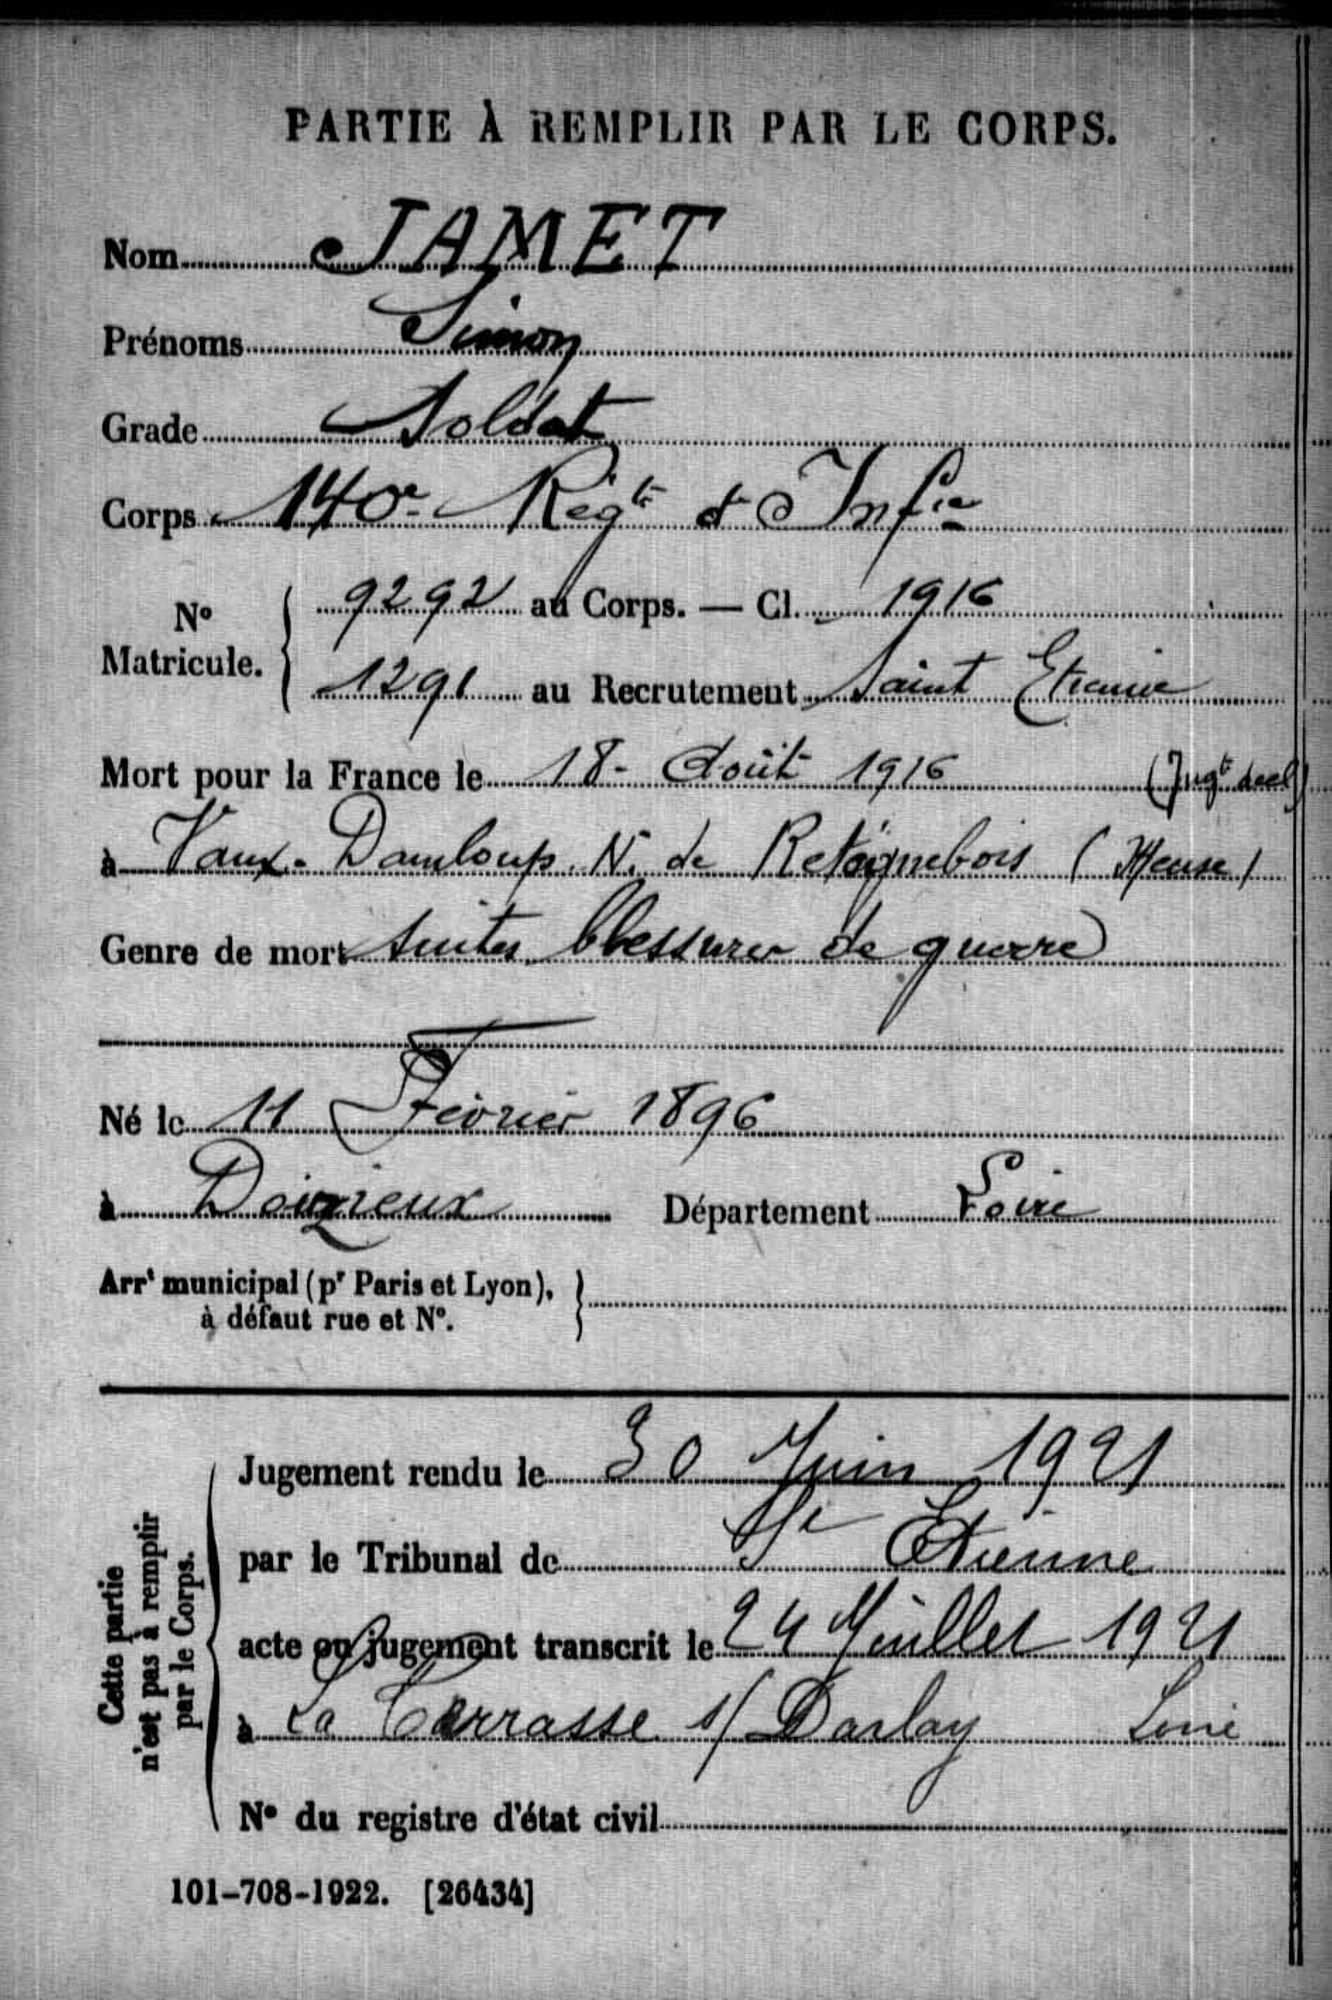 PARTIE À REMPLIR PAR LE CORPS.
Nom JAMET
Prénoms Simon
Grade Soldat
Corps 140e Régt d'Infie
No Matricule. 9292 au Corps. — Cl. 1916
1291 au Recrutement Saint Etienne
Mort pour la France le 18 Août 1916 (Jugt decl)
à Vaux-Damloup N. de Retégnebois (Meuse)
Genre de mort suites blessures de guerre
Né le 11 Février 1896
à Doizieux Département Loire
Arrt municipal (pr Paris et Lyon), à défaut rue et No.
Cette partie n'est pas à remplir par le Corps.
Jugement rendu le 30 Juin 1921
par le Tribunal de St Etienne
acte ou jugement transcrit le 24 Juillet 1921
à La Terrasse s/ Darlay Loire
No du registre d'état civil
101-708-1922. [26434]